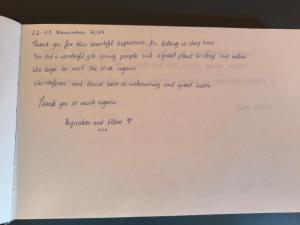 22-23 November 2024
Thank you for this beautiful experience, for letting us stay here.
You did a wonderful job giving people such a great place to stay and relax
We hope to visit the time again
and Louise were so welcoming and great hosts
Thank you so much again
and ♥